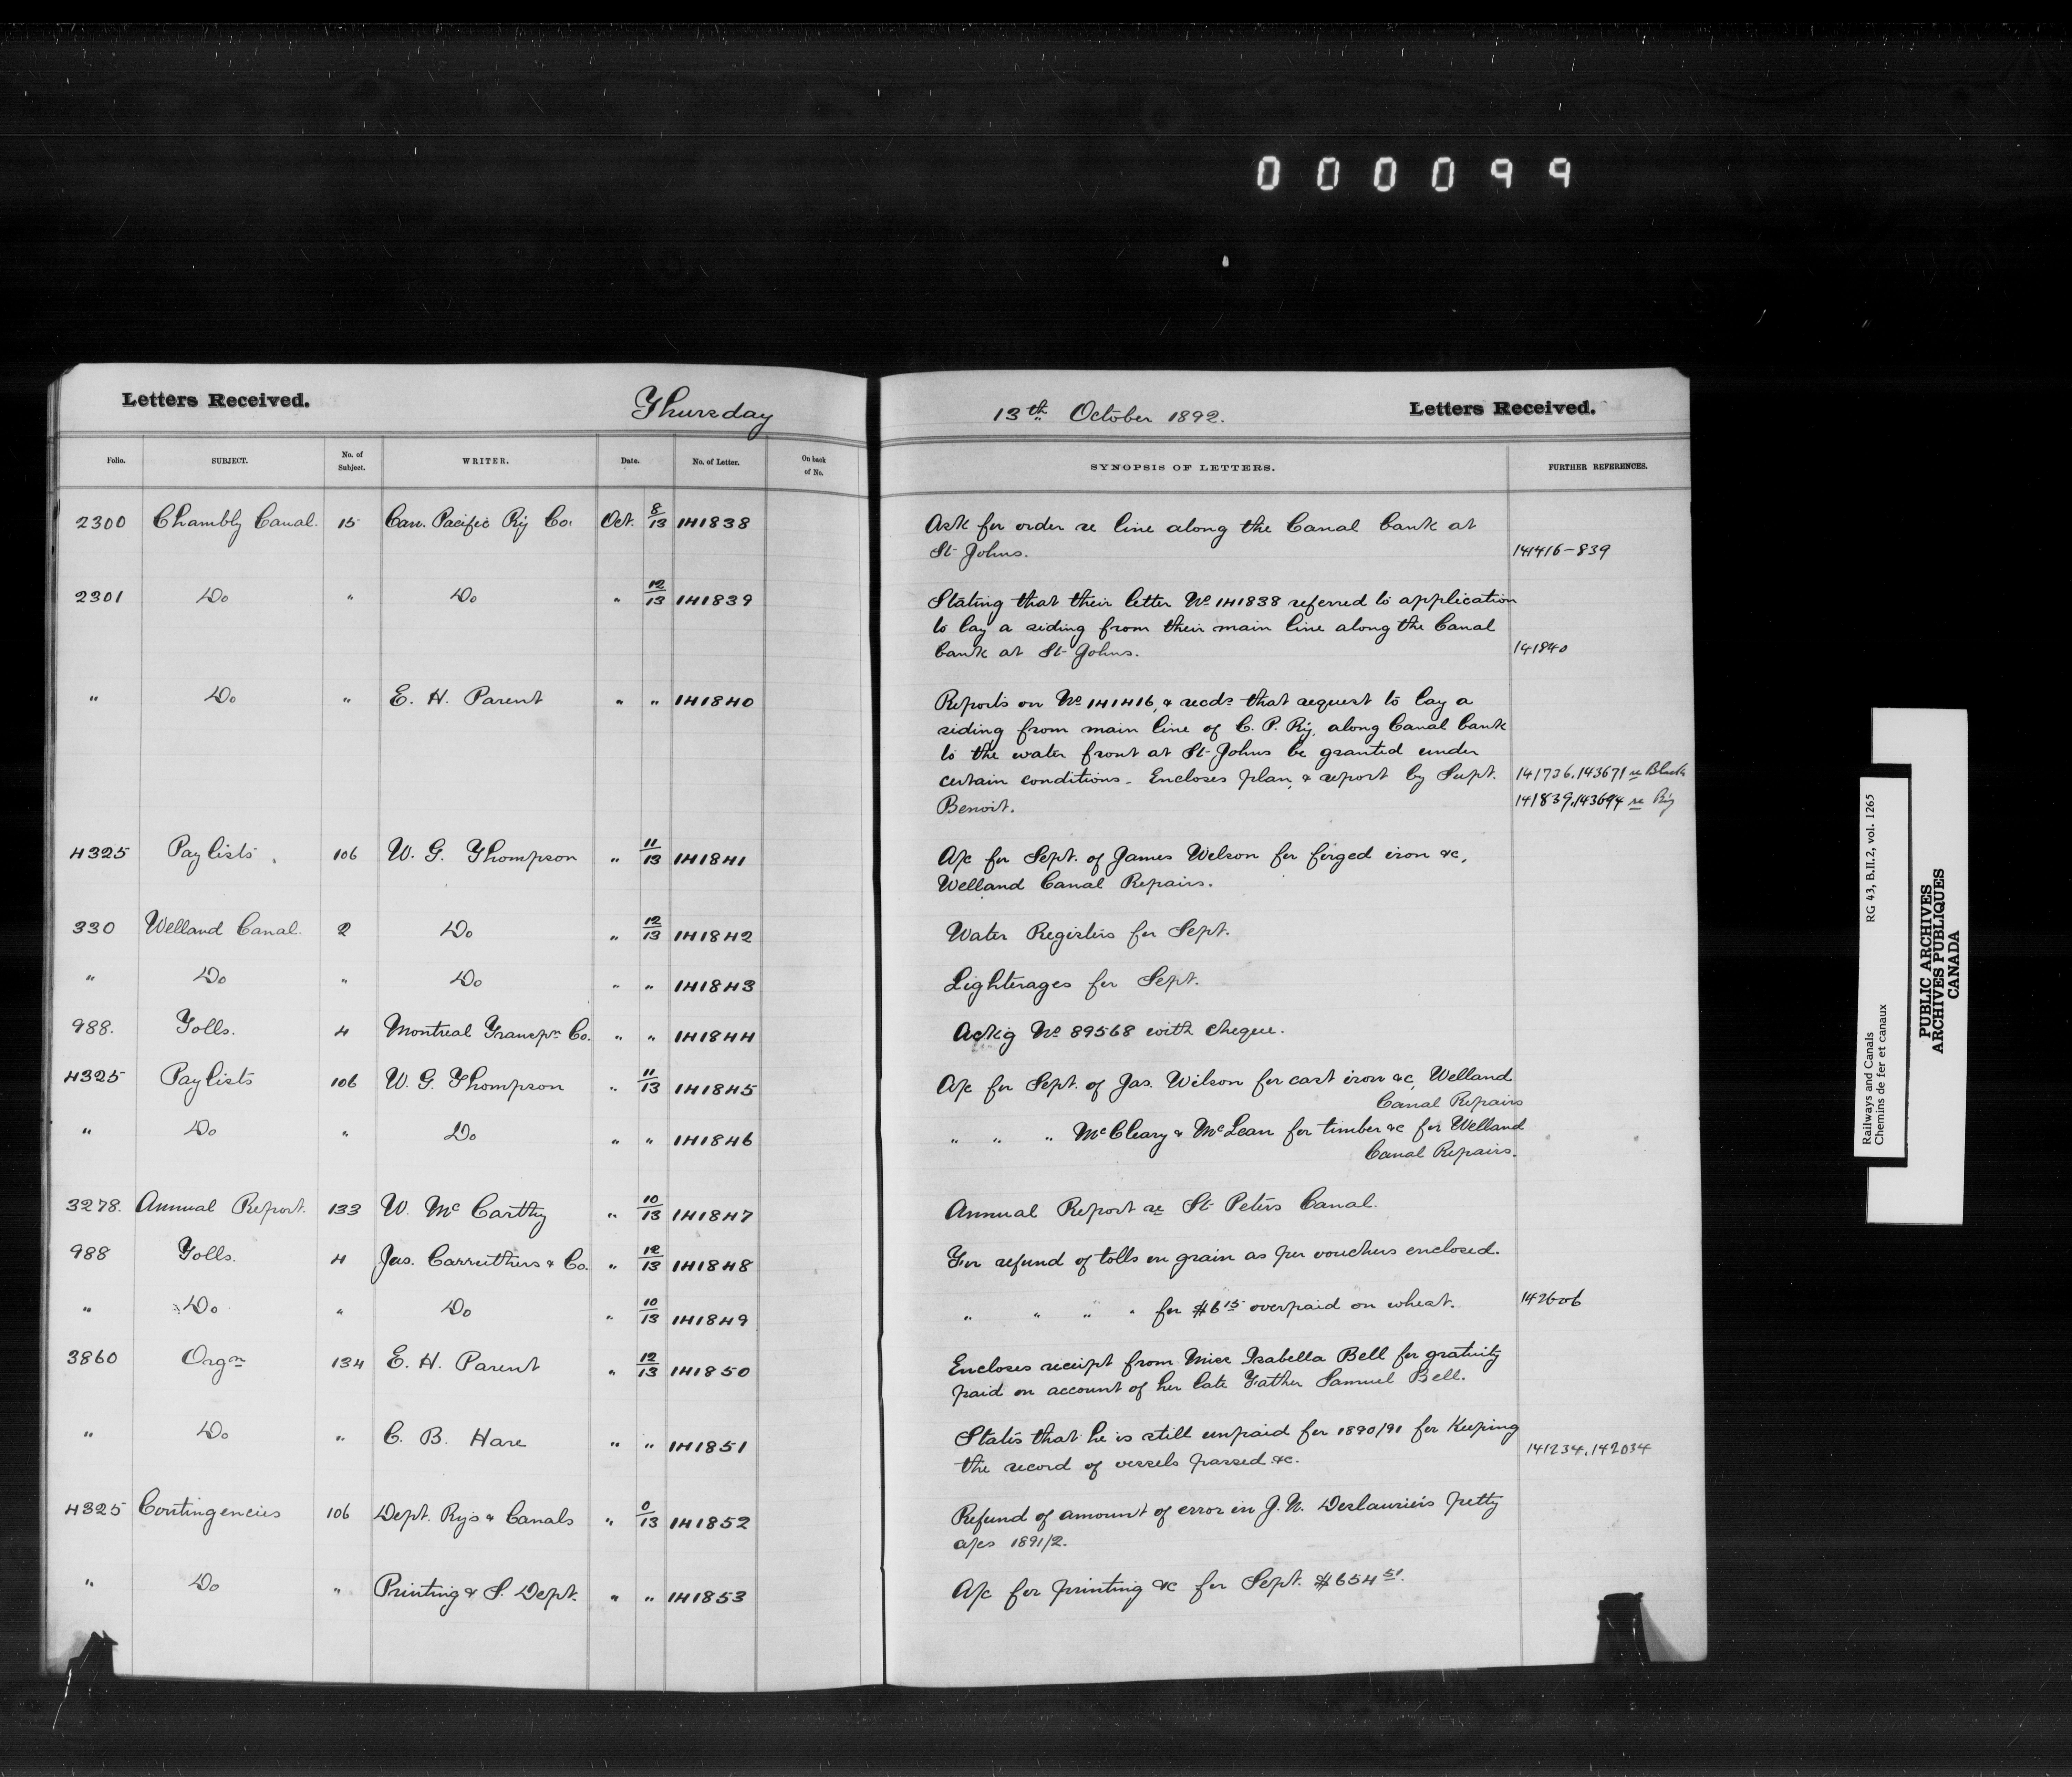 000099
Letters Received. Thursday 13th October 1892. Letters Received.
Folio. SUBJECT. No. of Subject. WRITER. Date. No. of Letter. On back of No. SYNOPSIS OF LETTERS. FURTHER REFERENCES.
2300 Chambly Canal. 15 Can. Pacific Ry Co. Oct. 8/13 141838 Ask for order re line along the Canal bank at
St Johns. 141416-839
2301 Do " Do " 12/13 141839 Stating that their letter No 141838 referred to application
to lay a siding from their main line along the Canal
bank at St Johns. 141840
" Do " E. H. Parent " " 141840 Reports on No 141416, & recds that request to lay a
siding from main line of C. P. Ry. along Canal bank
to the water front at St Johns be granted under
certain conditions - Encloses plan, & report by Supt. 141726.143671 re
Benoit. 141839.143694 re Ry
4325 Paylists. 106 W. G. Thompson " 11/13 141841 A/c for Sept. of James Wilson for forged iron &c,
Welland Canal Repairs.
330 Welland Canal. 2 Do " 12/13 141842 Water Registers for Sept.
" Do " Do " " 141843 Lighterages for Sept.
988. Tolls. 4 Montreal Transpn Co. " " 141844 Ackg No 89568 with cheque.
4325 Paylists 106 W. G. Thompson " 11/13 141845 A/c for Sept. of Jas. Wilson for cast iron &c, Welland
Canal Repairs
" Do " Do " " 141846 " " " McCleary & McLean for timber &c for Welland
Canal Repairs.
3278. Annual Report. 133 W. McCarthy " 10/13 141847 Annual Report re St Peters Canal.
988 Tolls. 4 Jas. Carruthers & Co. " 12/13 141848 For refund of tolls on grain as per vouchers enclosed.
" Do " Do " 10/13 141849 " " " " for $6 15 overpaid on wheat. 142606
3860 Orgn 134 E. H. Parent " 12/13 141850 Encloses receipt from Miss Isabella Bell for gratuity
paid on account of her late Father Samuel Bell.
" Do " C. B. Hare " " 141851 States that he is still unpaid for 1890/91 for Keeping
the record of vessels passed &c. 141234.142034
4325 Contingencies 106 Dept. Rys & Canals " 0/13 141852 Refund of amount of error in J. N. Deslauriers petty
a/cs 1891/2.
" Do " Printing & S. Dept. " " 141853 A/c for printing &c for Sept. $654 51.
Railways and Canals RG 43, B.II.2, vol. 1265
Chemins de fer et canaux
PUBLIC ARCHIVES
ARCHIVES PUBLIQUES
CANADA